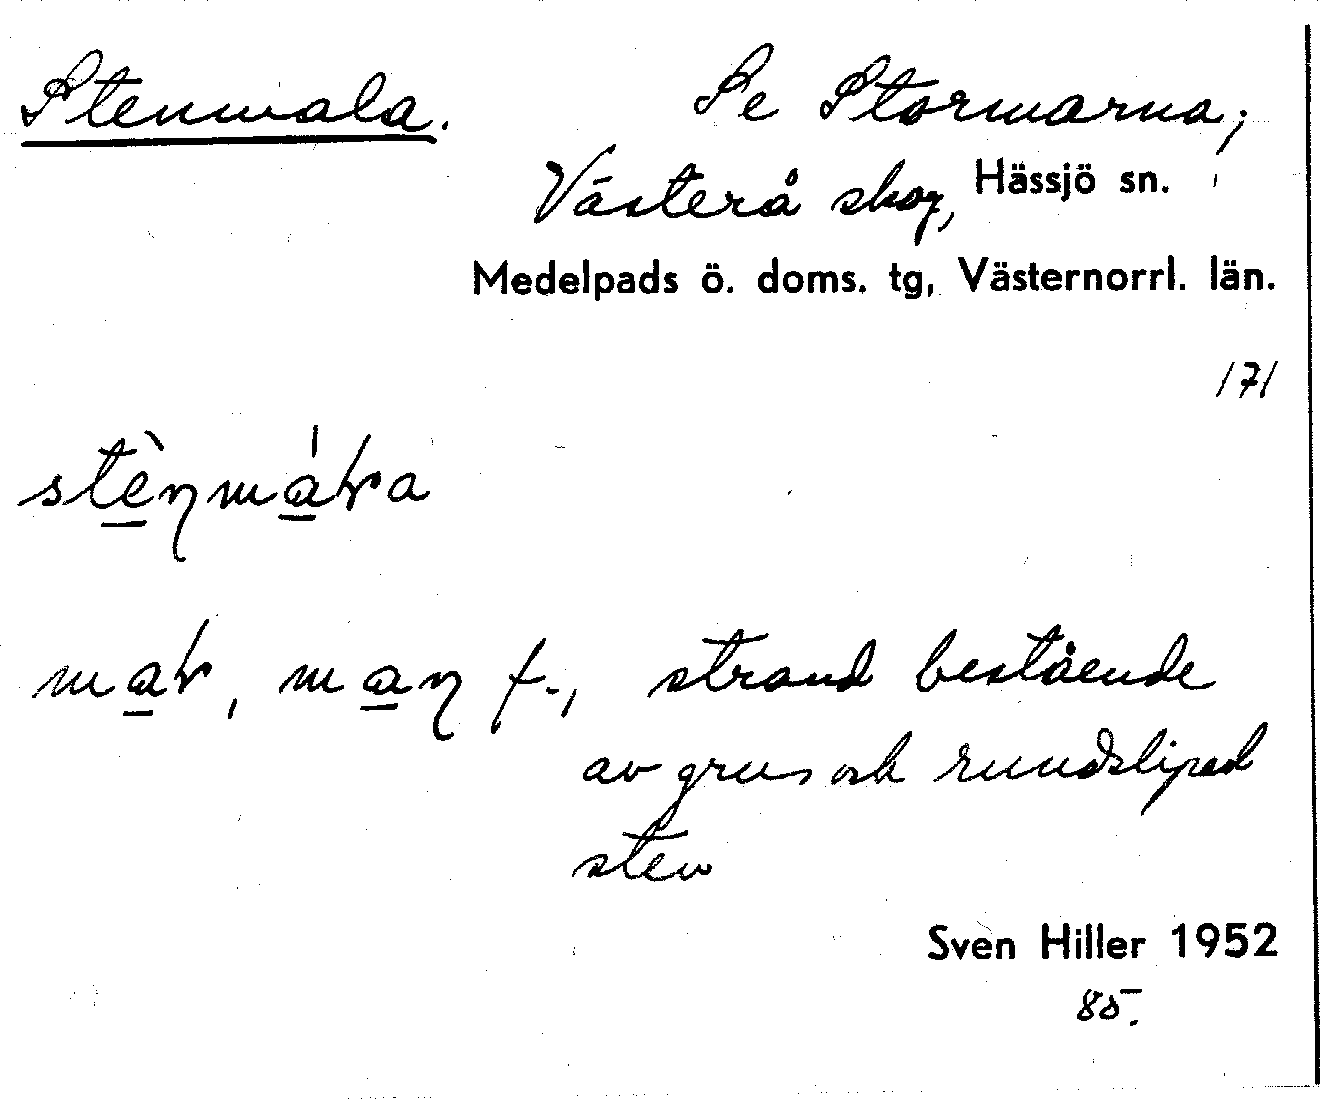 Stenmala. Se Stormarna;
Västerå skog, Hässjö sn.
Medelpads ö. doms. tg, Västernorrl. län.
171
strand bestående
av grus och rundslipad
sten
Sven Hiller 1952